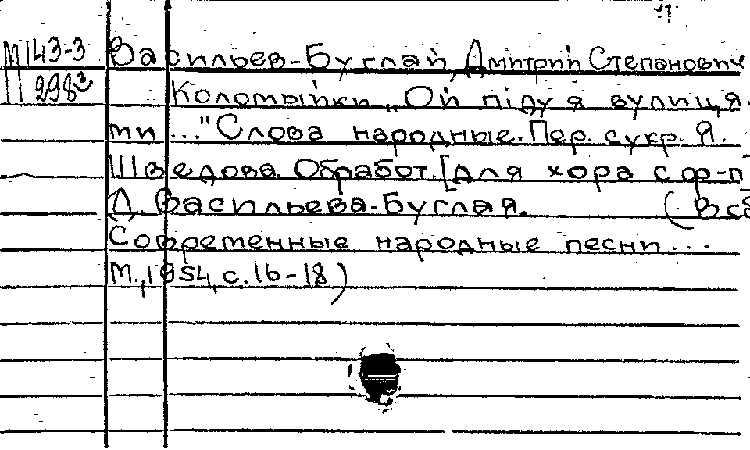 М 143-3 Васильев-Буглай, Дмитрий Степанович
П 298³ Коломыйки „Ой пiду я вулиця
ми..." Слова народные. Пер. с укр. Я.
Шведова. Обработ. [для хора с ф-п
Д. Васильева-Буглая. (В сб
Современные народные песни...
М., 1954, с. 16-18)